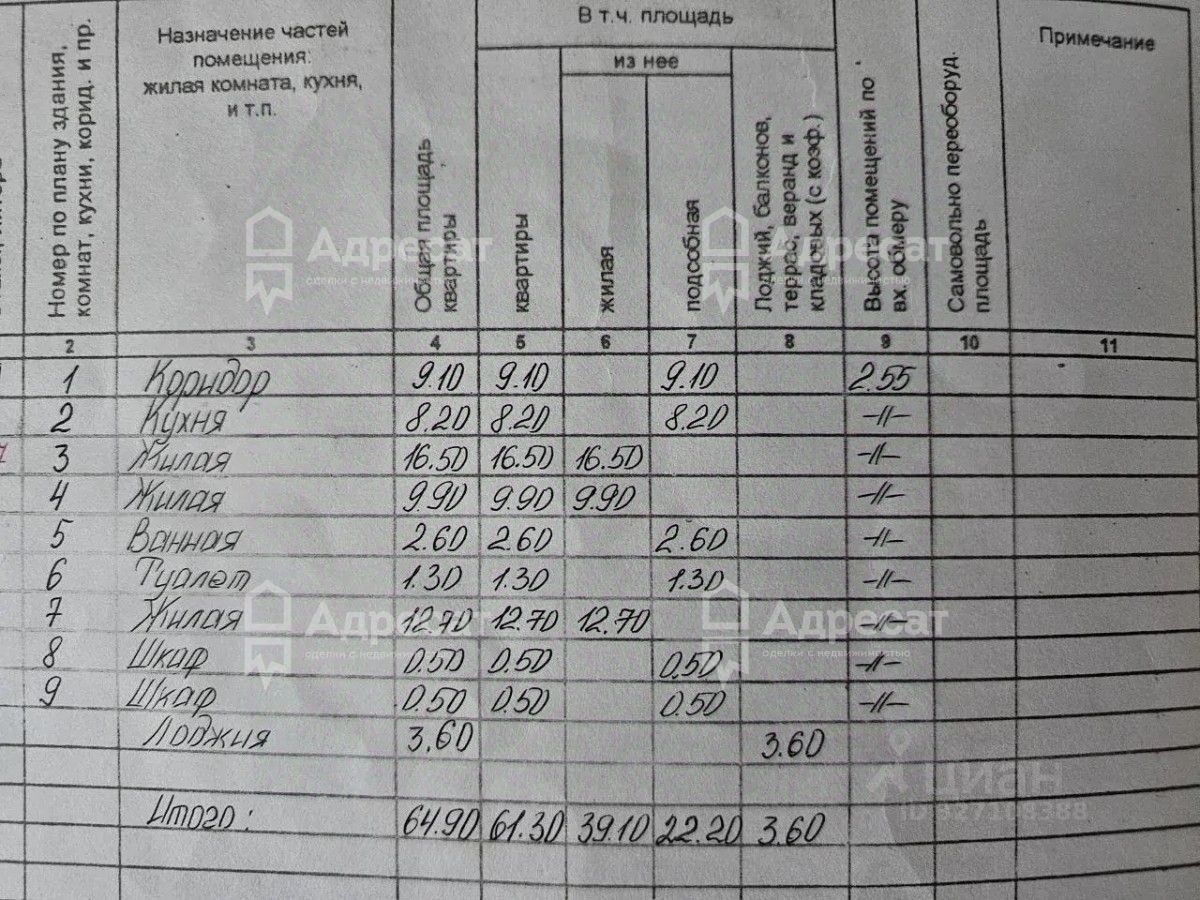 Номер по плану здания,
комнат, кухни, корид. и пр.
Назначение частей
помещения:
жилая комната, кухня,
и т.п.
Общая площадь
квартиры
В т.ч. площадь
из нее
квартиры
жилая
подсобная
Лоджий, балконов,
террас, веранд и
кладовых (с коэф.)
Высота помещений по
вх. обмеру
Самовольно переоборуд.
площадь
Примечание
2 3 4 5 6 7 8 9 10 11
1 Коридор 9.10 9.10 9.10 2.55
2 Кухня 8.20 8.20 8.20 -//-
3 Жилая 16.50 16.50 16.50 -//-
4 Жилая 9.90 9.90 9.90 -//-
5 Ванная 2.60 2.60 2.60 -//-
6 Туалет 1.30 1.30 1.30 -//-
7 Жилая 12.70 12.70 12.70 -//-
8 Шкаф 0.50 0.50 0.50 -//-
9 Шкаф 0.50 0.50 0.50 -//-
Лоджия 3.60 3.60
Итого: 64.90 61.30 39.10 22.20 3.60
Адресат
сделки с недвижимостью
Адресат
сделки с недвижимостью
Адресат
сделки с недвижимостью
Адресат
сделки с недвижимостью
циан